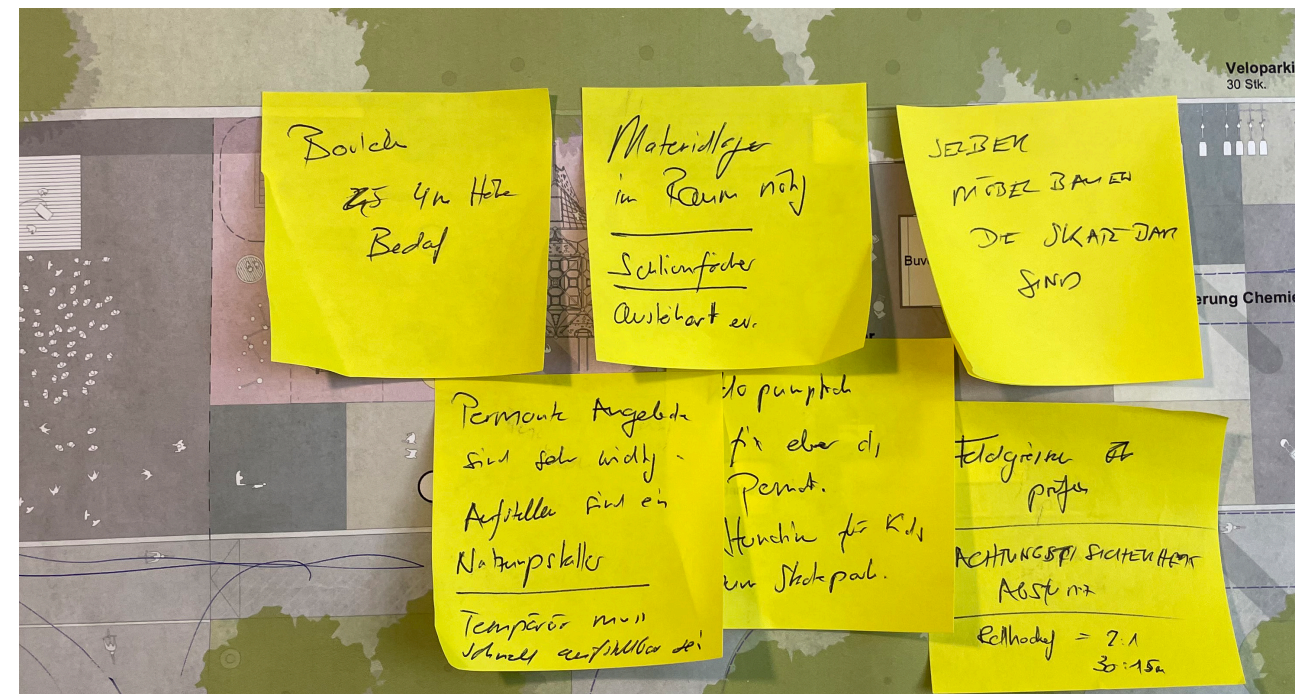 Veloparki
30 Stk.
Bouldern
4m Höhe
Bedarf
Materiallager
im Raum nötig
Schliessfächer
ev.
SELBER
MÖBEL BAUEN
DIE SKATE BAR
SIND
Buv
erung Chemie
Permanente Angebote
sind sehr wichtig.
Aufstellen sind ein
Nutzungskiller
Temporär muss
schnell aufstellbar sei
pumptrack
fix eher
Permant.
für Kids
zum Skatepark.
Feldgrössen
prüfen
ACHTUNG SICHERHEIT
Absturz
Rollhockey = 2:1
30:15m